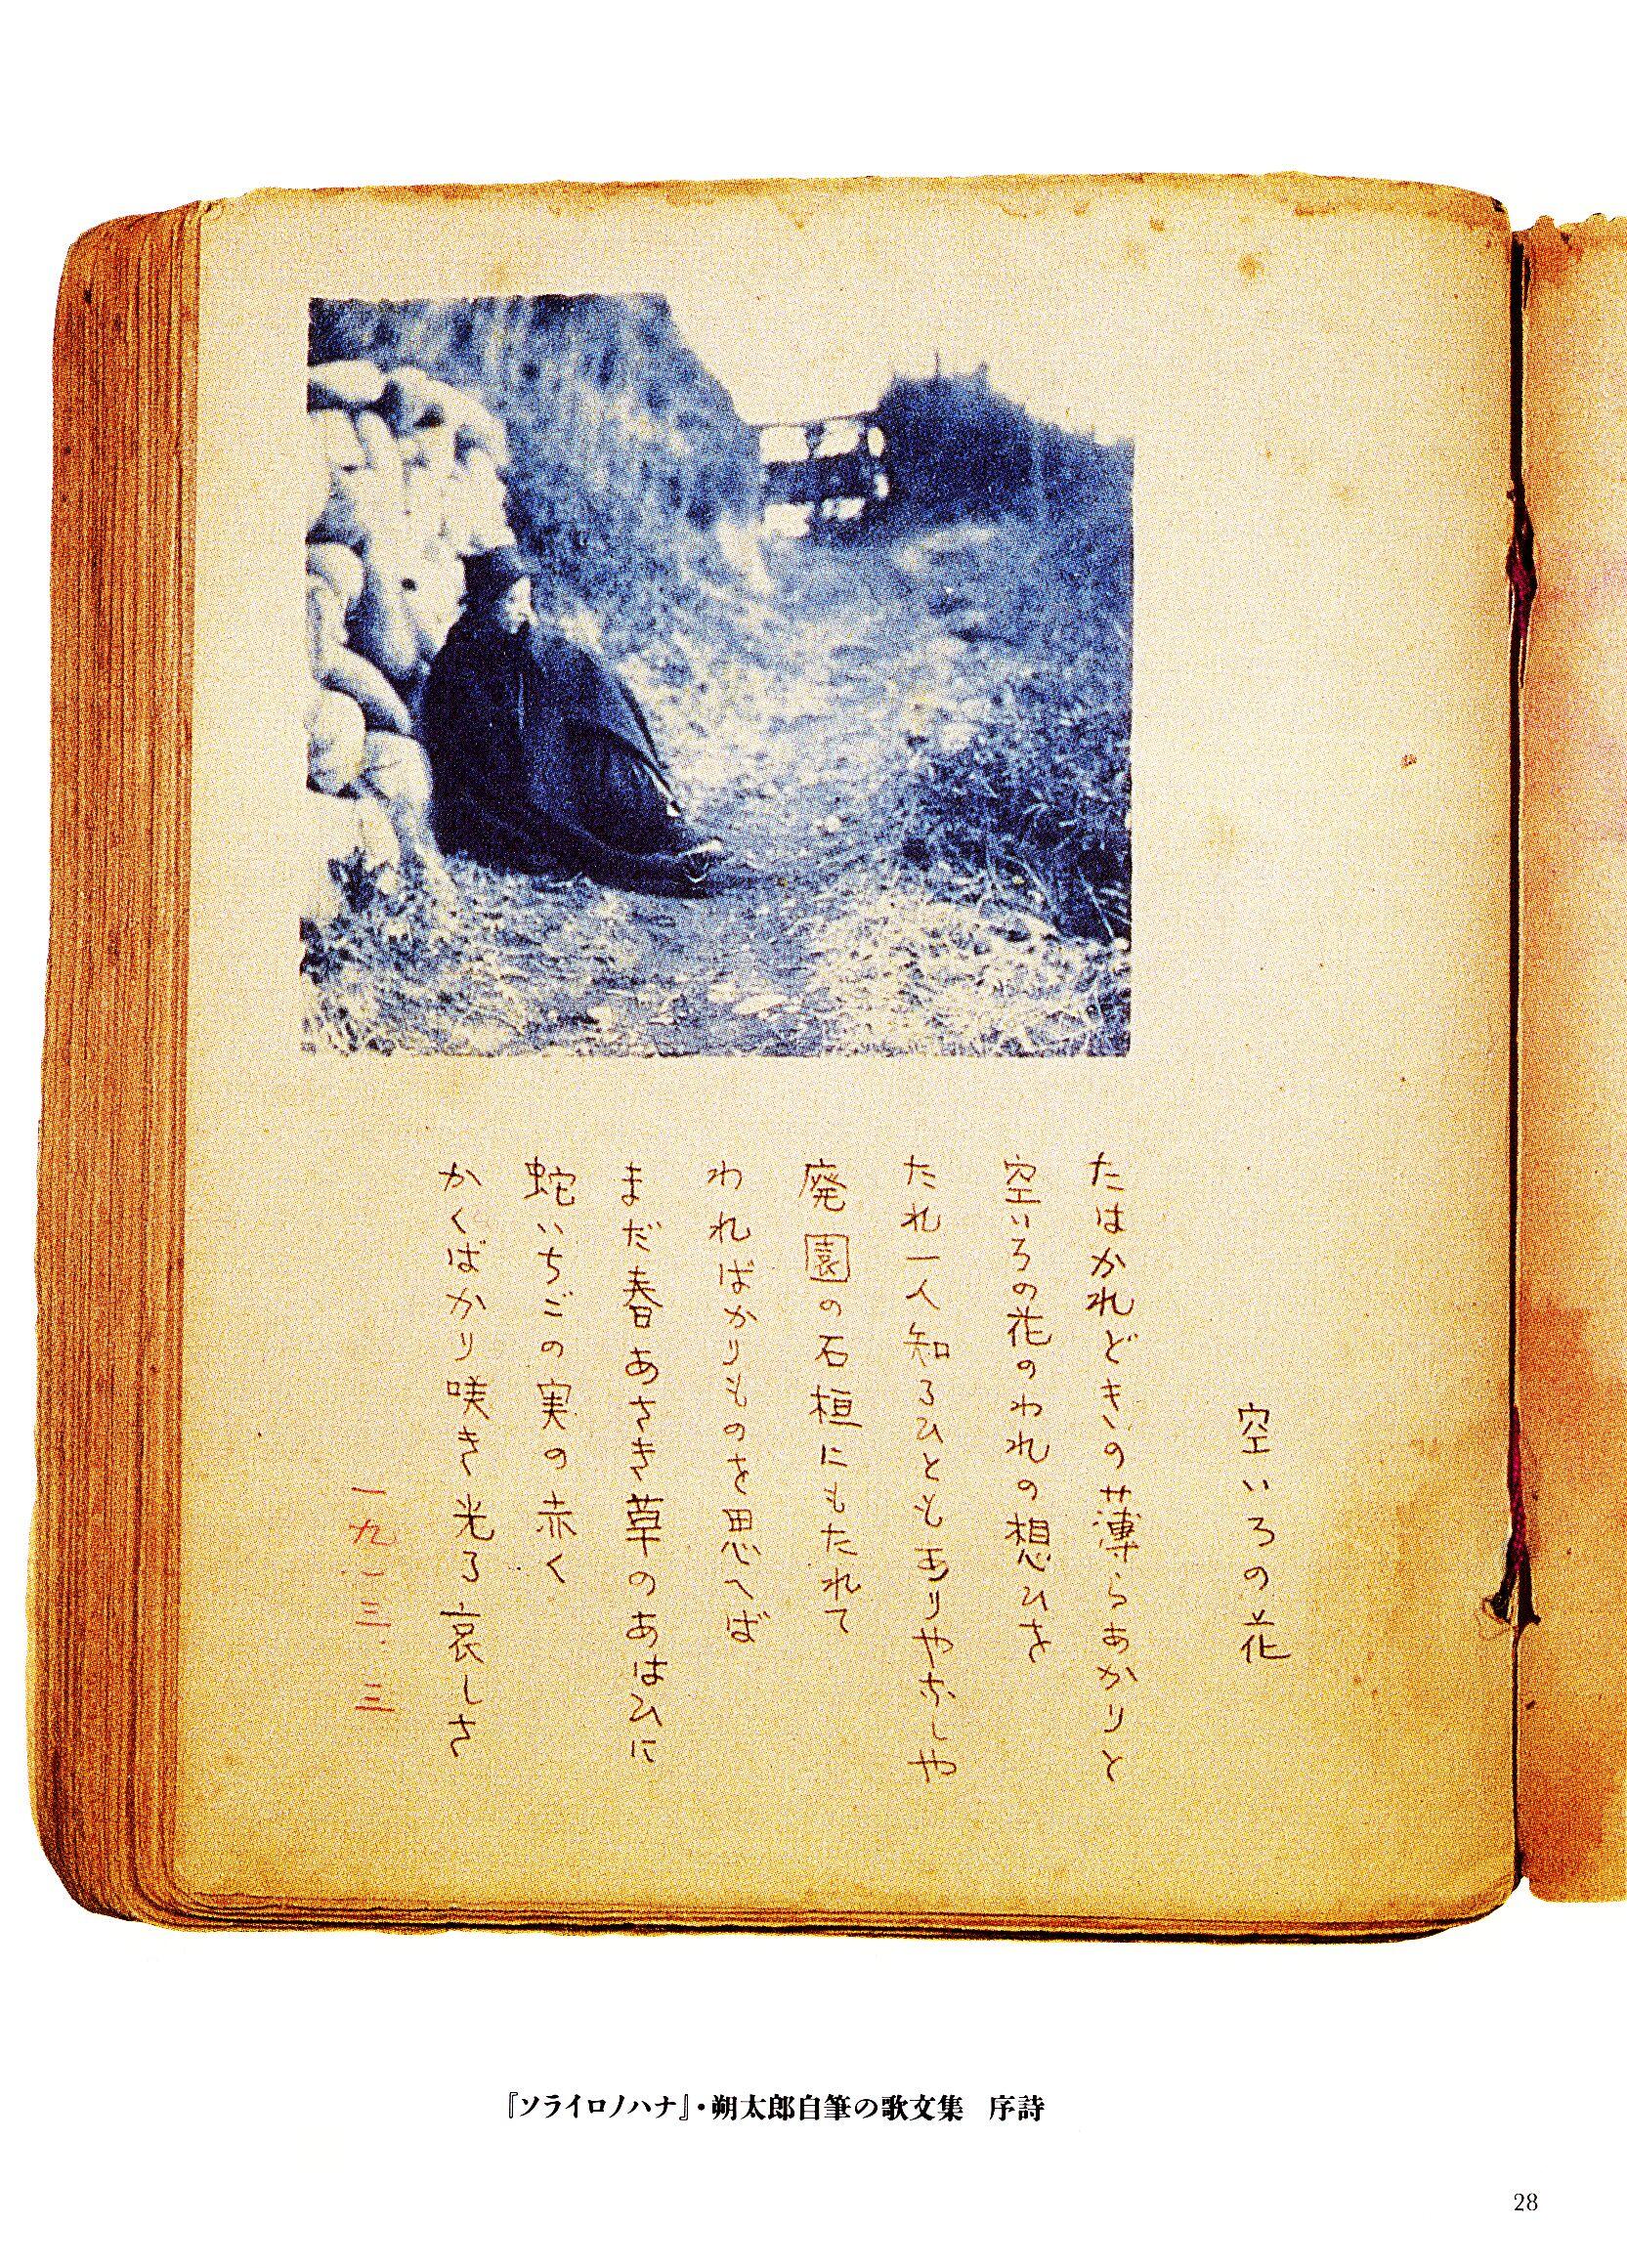 空いろの花
たはかれどきの薄らあかりと
空いろの花のわれの想ひを
たれ一人知るひともありやなしや
廃園の石垣にもたれて
わればかりものを思へば
まだ春あさき草のあはひに
蛇いちごの実の赤く
かくばかり咲き光る哀しさ
一九一三.三
『ソライロノハナ』・朔太郎自筆の歌文集 序詩
28